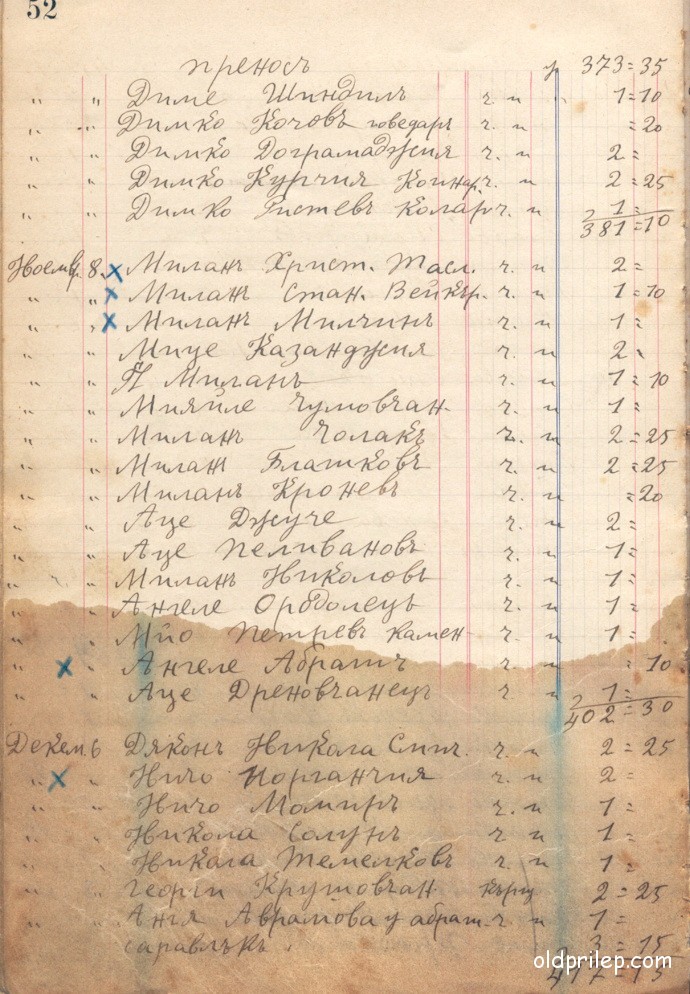 52
преносъ 373=35
" " Диме Шиндилъ ч. и 1=10
" " Димко Кочовъ говедаръ ч. и =20
" " Димко Дограмаджия ч. и 2=
" " Димко Курчия ч. и 2=25
" " Димко Ристевъ Колар ч. и 1=
381=10
Ноемвр. 8. Х Милан Христ. Тасл. ч. и 2=
" " Х Милан Стан. Вейкър. ч. и 1=10
" " Х Миланъ Милчинъ ч. и 1=
" " Мице Казанджия ч. и 2=
" " П Миланъ ч. и 1=10
" " Мияйле Чумовчан ч. и 1=
" " Милан Чолакъ ч. и 2=25
" " Милан Блашковъ ч. и 2=25
" " Миланъ Кроневъ ч. и =20
" " Аце Джуче ч. и 2=
" " Аце Пеливановъ ч. и 1=
" " Миланъ Николовъ ч. и 1=
" " Ангеле Орбдолецъ ч. и 1=
" " Мйо Петревъ камен ч. и 1=
" Х " Ангеле Абрашъ ч. и =10
" " Аце Дреновчанецъ ч. и 1=
402=30
Декем 6 Дяконъ Никола Смич. ч. и 2=25
" Х " Ничо Йорганчия ч. и 2=
" " Ничо Момиръ ч. и 1=
" " Никола Солунъ ч. и 1=
" " Никола Темелковъ ч. и 1=
" " Георги Крушовчан 2=25
" " Ангя Аврамова у абраш. ч. и 1=
саравлъкъ. 3=15
417=15
oldprilep.com